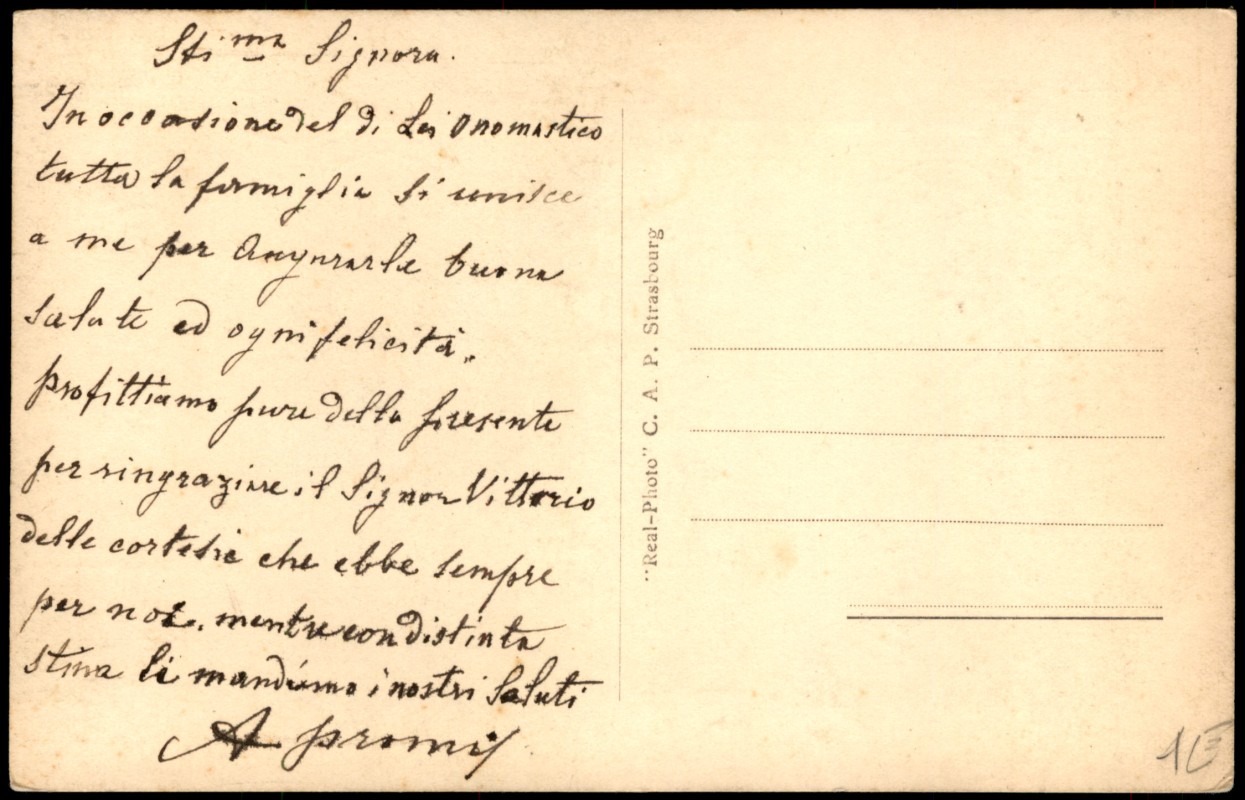 Sti.ma Signora.
In occasione del di Lei Onomastico
tutta la famiglia si unisce
a me per augurarle buona
salute ed ogni felicità.
profittiamo pure della presente
per ringraziare il Signor Vittorio
delle cortesie che ebbe sempre
per noi. mentre con distinta
stima Li mandiamo i nostri Saluti
A promis
"Real-Photo" C. A. P. Strasbourg